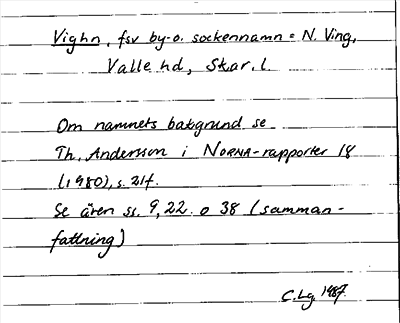 Vighn, fsv by-o. sockennamn = N. Ving,
Valle hd, Skar. l.
Om namnets bakgrund se
Th. Andersson i NORNA-rapporter 18
(1980), s. 21f.
Se även ss. 9, 22 o 38 (samman-
fattning)
C. Lg 1987.